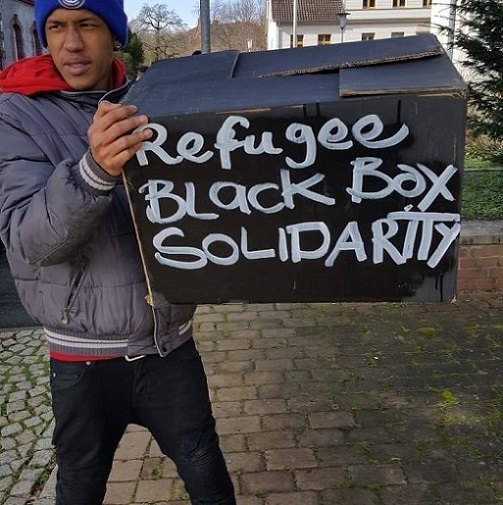 Refugee
BLack Box
SOLIDARITY